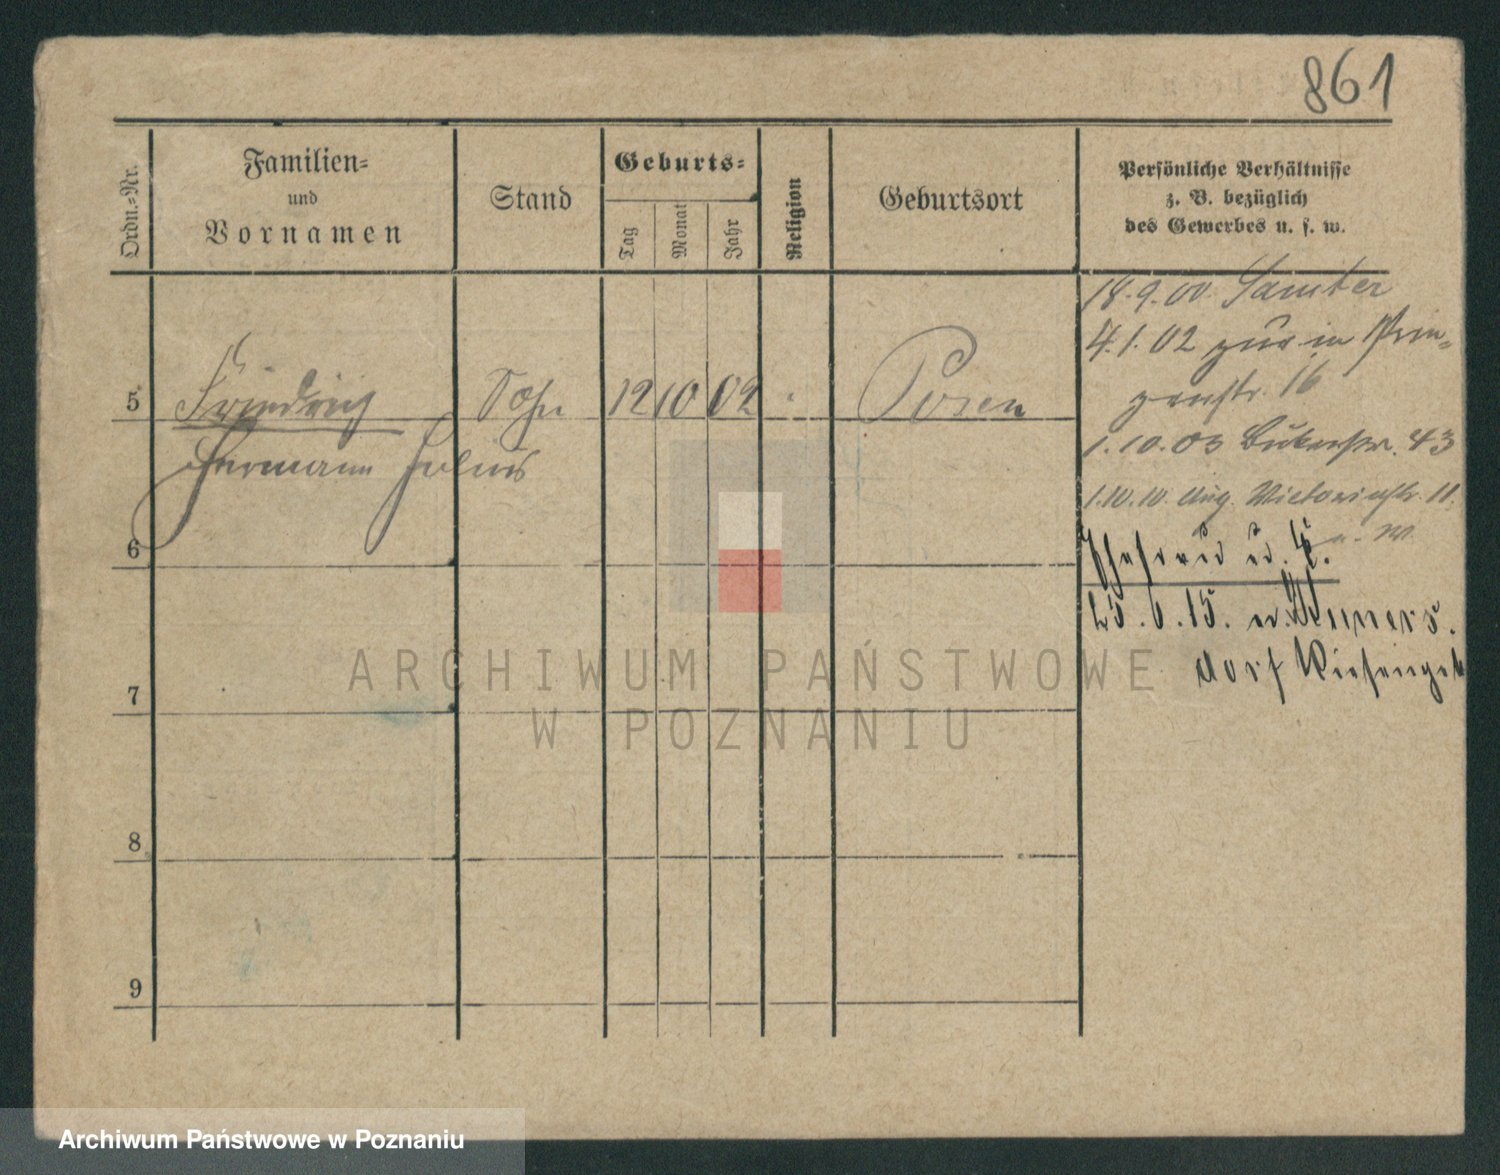 861
Ordn.-Nr.
Familien-
und
Vornamen
Stand
Geburts-
Tag
Monat
Jahr
Religion
Geburtsort
Persönliche Verhältnisse
z. B. bezüglich
des Gewerbes u. s. w.
18.9.00. Samter
4.1.02 zur in Prin-
zenstr. 16
5
Friedrich
Sohn
12 10 02
Posen
Hermann Julius
1.10.03 Bukerstr. 43
1.10.10. Aug. Victoriastr. 11.
6
Ehefrau u. K.
25.6.15. n.
dorf
7
ARCHIWUM PAŃSTWOWE
W POZNANIU
8
9
Archiwum Państwowe w Poznaniu